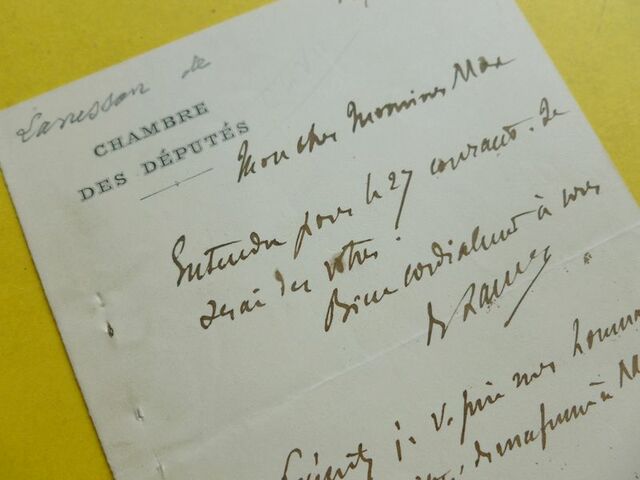 Lanessan de
CHAMBRE
DES DÉPUTÉS
Mon cher Monsieur Max
Entendu pour le 27 courant. Je
serai des vôtres.
Bien cordialement à vous
j. v. prie mes homma
à